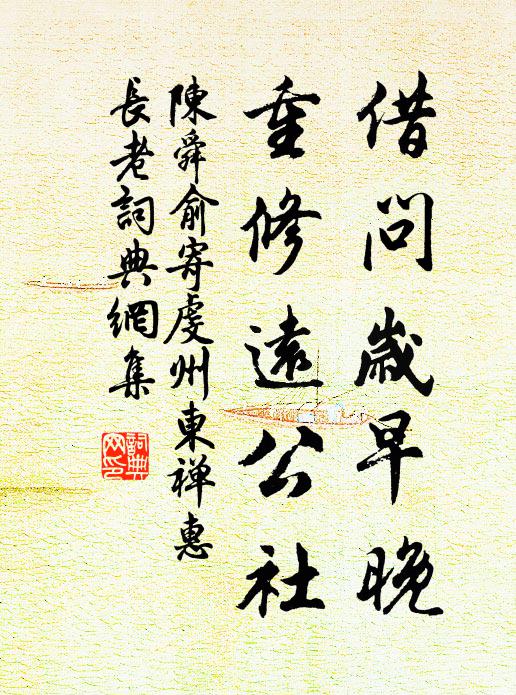 借问歲早晚
重修遠公社
陳舜俞寄虔州東禅惠
長老詞典網集
詞典网印